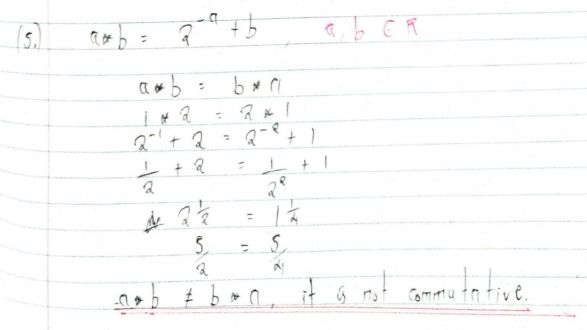 15.) a*b = 2^-a + b, a, b ∈ R
a*b = b*a
1*2 = 2*1
2^-1 + 2 = 2^-2 + 1
1/2 + 2 = 1/2^2 + 1
2 1/2 = 1 1/4
5/2 = 5/4
a*b ≠ b*a, it is not commutative.